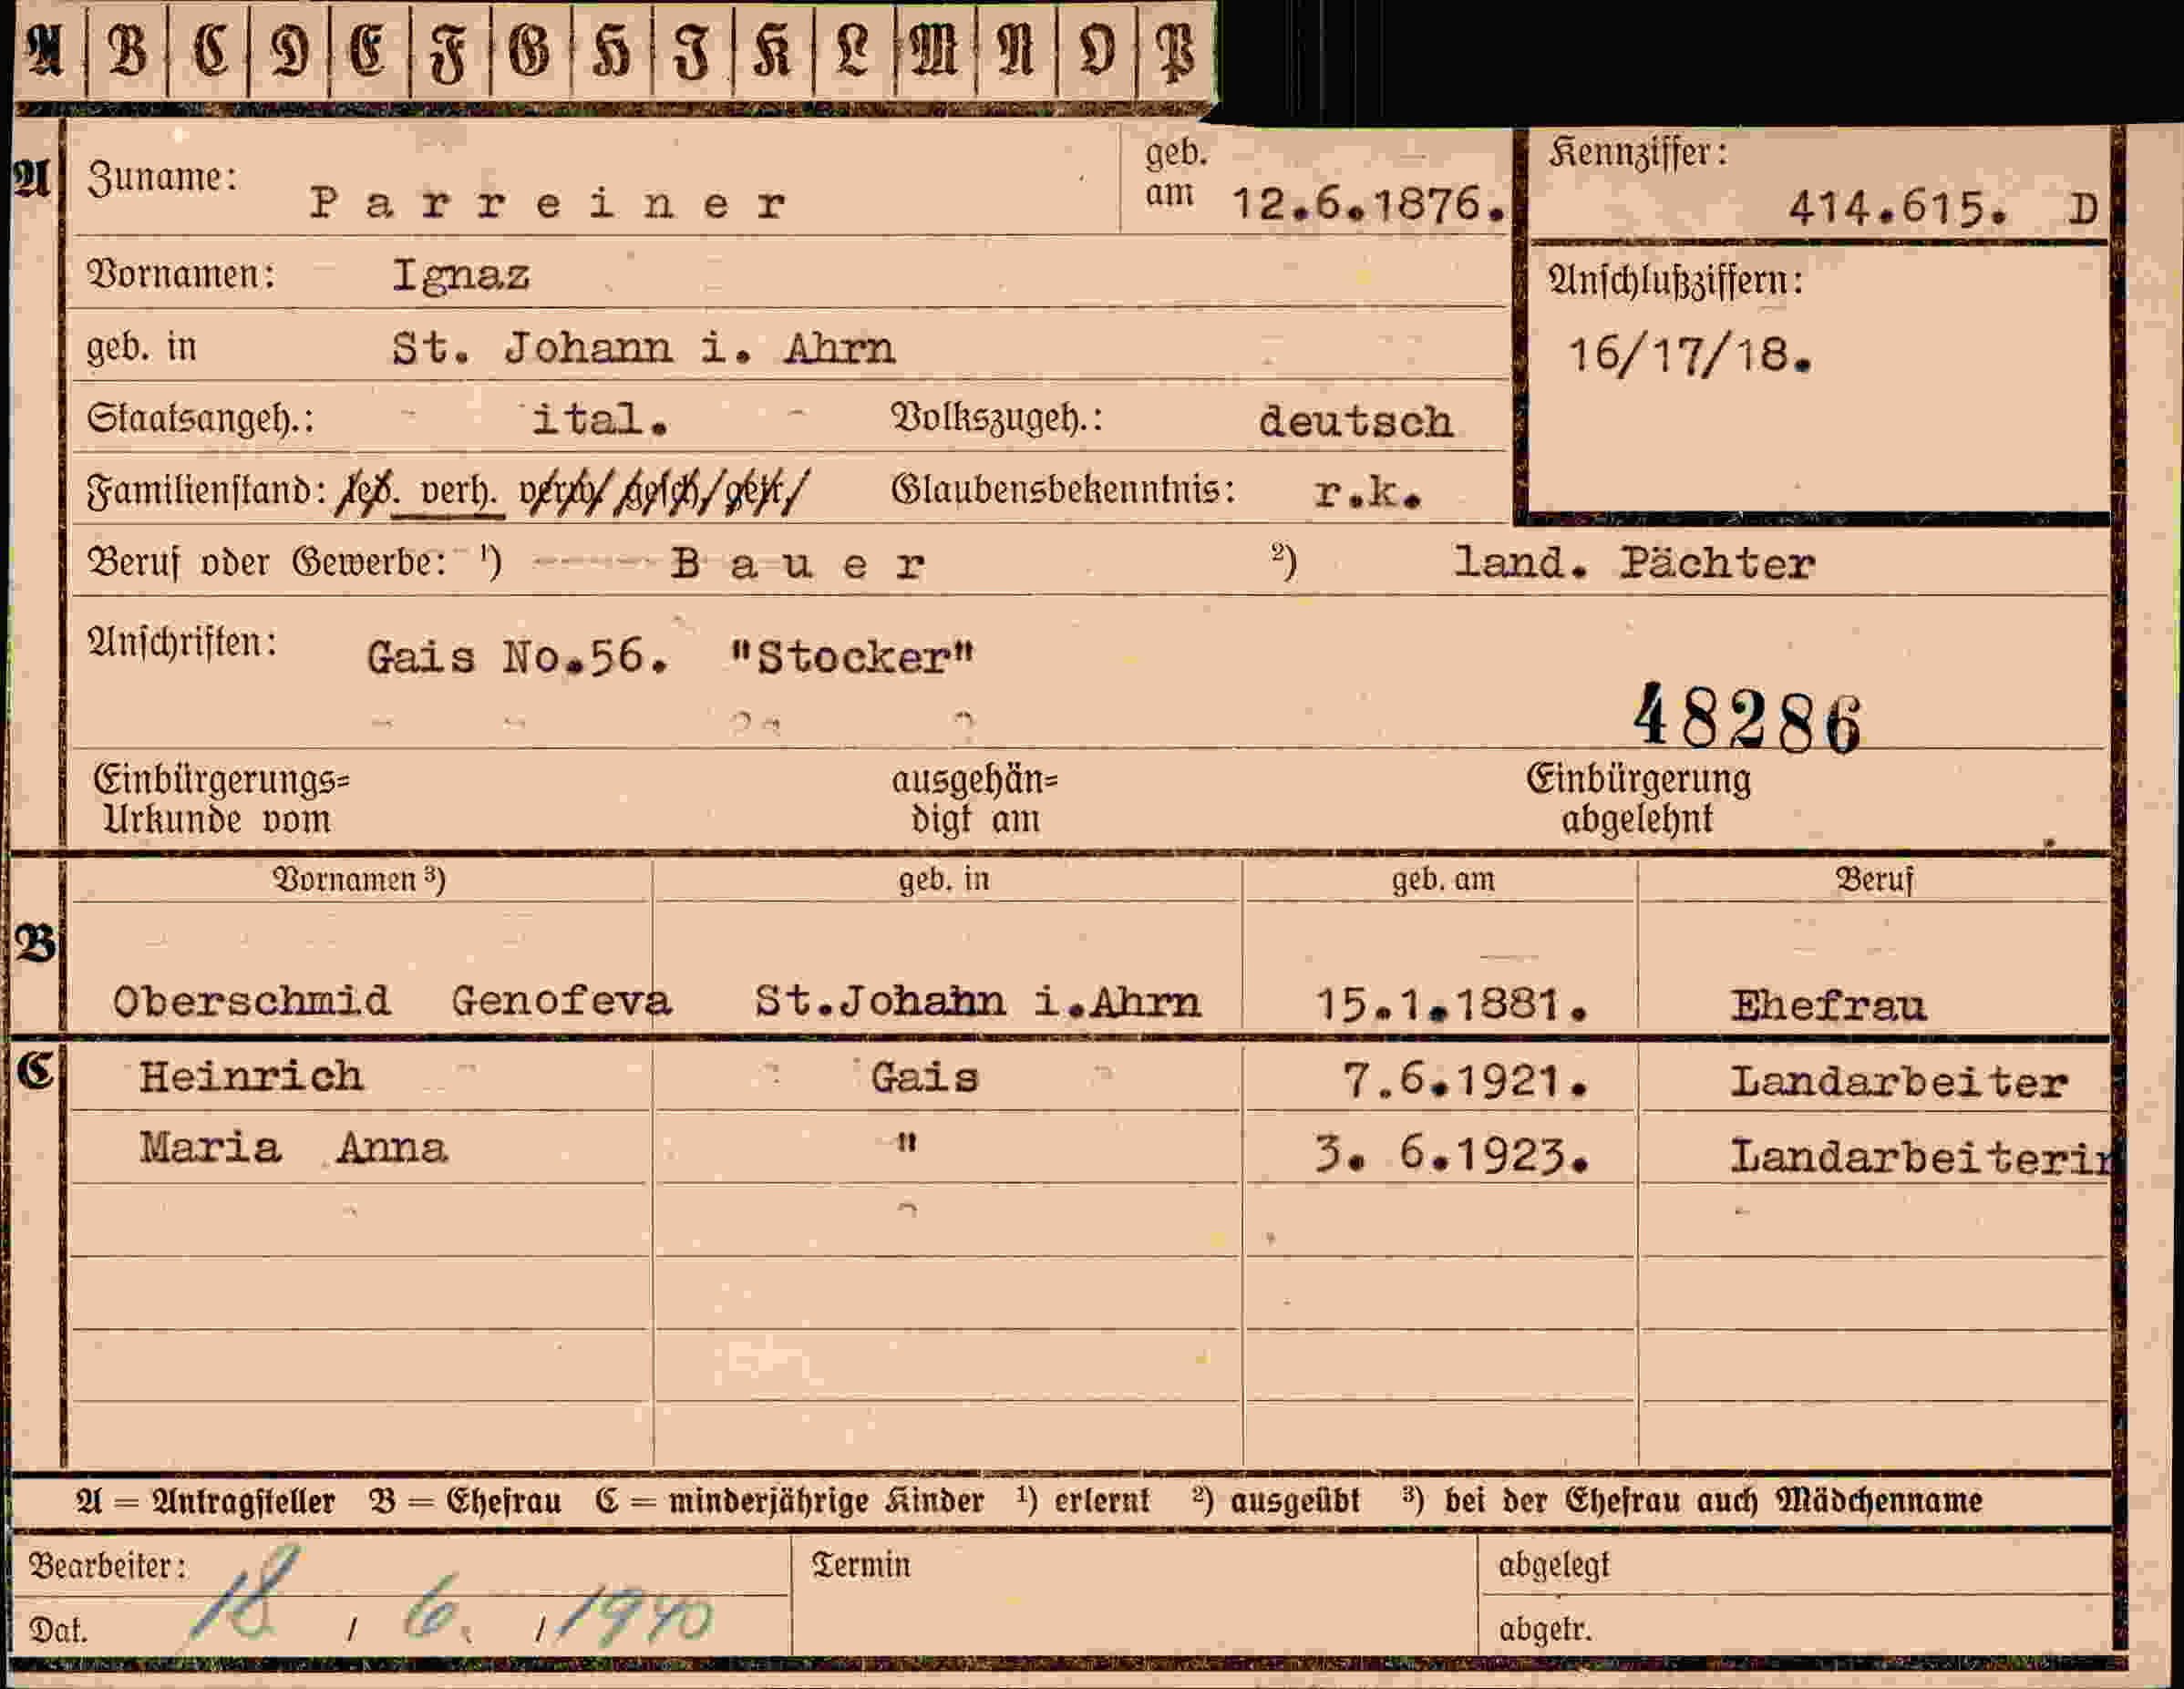 A B C D E F G H J K L M N O P
A Zuname: Parreiner geb. am 12.6.1876. Kennziffer: 414.615. D
Vornamen: Ignaz Anschlußziffern:
geb. in St. Johann i. Ahrn 16/17/18.
Staatsangeh.: ital. Volkszugeh.: deutsch
Familienstand: led. verh. verw. gesch. getr. Glaubensbekenntnis: r.k.
Beruf oder Gewerbe: ¹) Bauer ²) land. Pächter
Anschriften: Gais No.56. "Stocker"
48286
Einbürgerungs= ausgehän= Einbürgerung
Urkunde vom digt am abgelehnt
Vornamen ³) geb. in geb. am Beruf
B
Oberschmid Genofeva St.Johann i.Ahrn 15.1.1881. Ehefrau
C Heinrich Gais 7.6.1921. Landarbeiter
Maria Anna " 3. 6.1923. Landarbeiterin
A = Antragsteller B = Ehefrau C = minderjährige Kinder ¹) erlernt ²) ausgeübt ³) bei der Ehefrau auch Mädchenname
Bearbeiter: Termin abgelegt
Dat. 18 / 6. / 1940 abgetr.